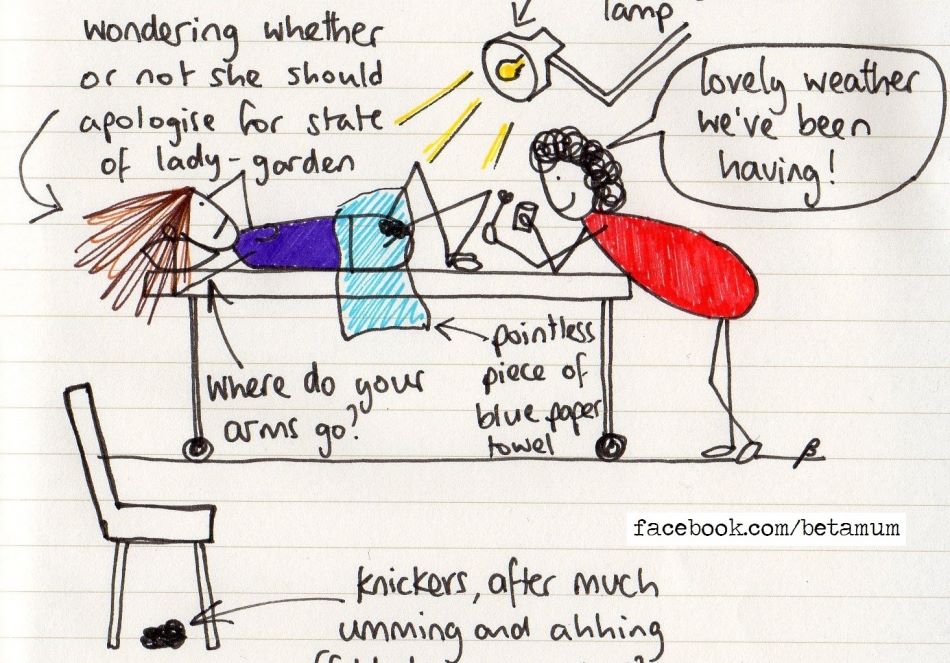 wondering whether
or not she should
apologise for state
of lady-garden
lamp
lovely weather
we've been
having!
where do your
arms go?
pointless
piece of
blue paper
towel
β
facebook.com/betamum
knickers, after much
umming and ahhing